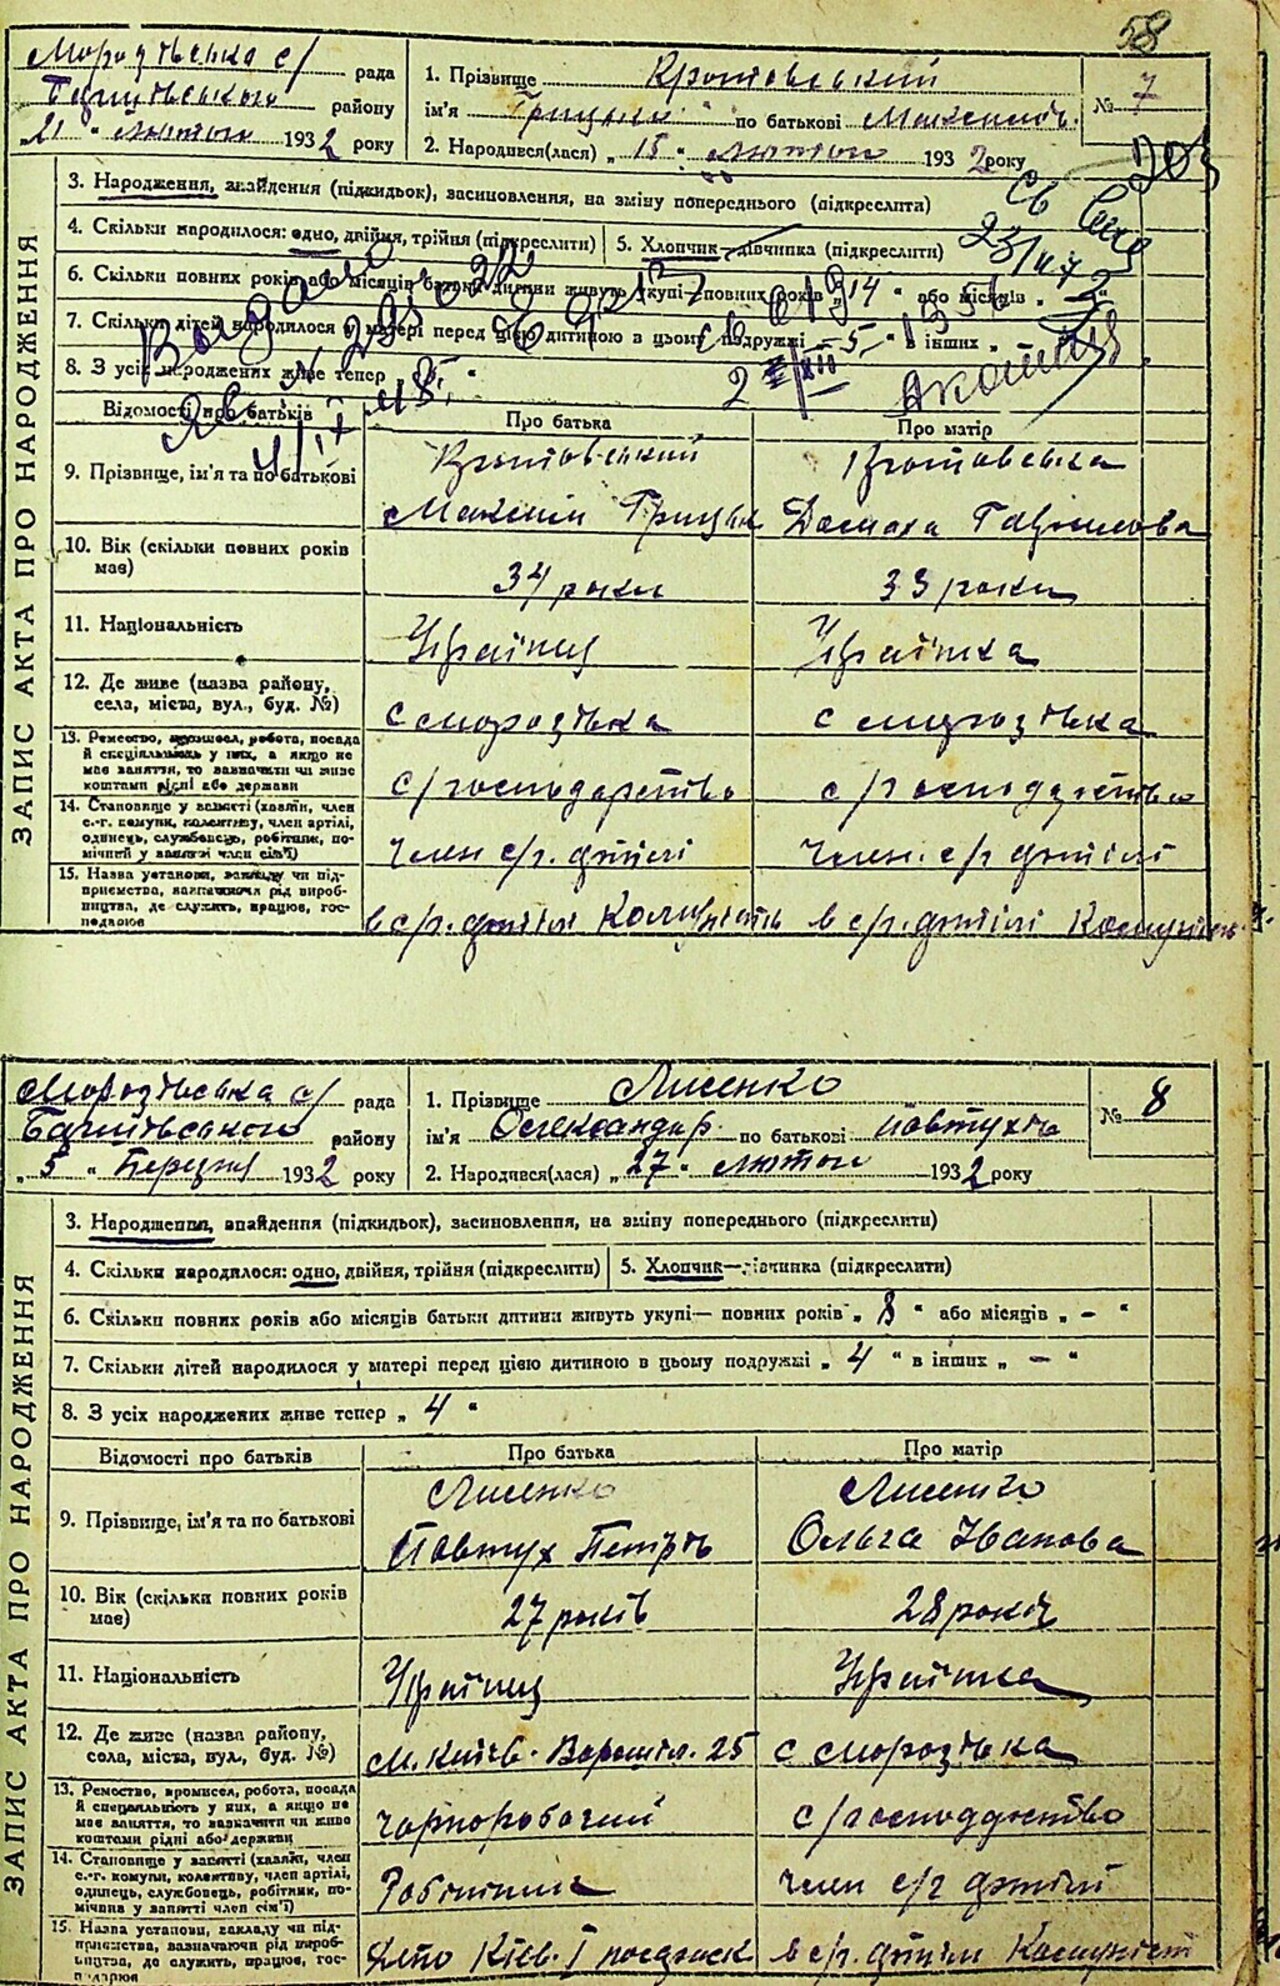 58
Морозівська с/ рада
району
"21" лютого 1932 року
1. Прізвище Кротовський
ім'я Грицько по батькові Максимів.
2. Народився(лася) "15" лютого 1932 року
№ 7
ЗАПИС АКТА ПРО НАРОДЖЕННЯ
3. Народження, знайдення (підкидьок), засиновлення, на зміну попереднього (підкреслити)
4. Скільки народилося: одно, двійня, трійня (підкреслити)
5. Хлопчик—дівчинка (підкреслити)
6. Скільки повних років або місяців батьки дитини живуть укупі—повних років "14" або місяців "
7. Скільки дітей народилося у матері перед цією дитиною в цьому подружжі "5" в інших "
8. З усіх народжених живе тепер "
Відомості про батьків
Про батька
Про матір
9. Прізвище, ім'я та по батькові
Кротовський
Максим Грицьк
Кротовська
Домаха Гаврилова
10. Вік (скільки повних років має)
34 роки
33 роки
11. Національність
Українец
Українка
12. Де живе (назва району, села, міста, вул., буд. №)
с Морозівка
с Морозівка
13. Ремество, промисел, робота, посада й спеціяльність у них, а якщо не має заняття, то зазначити чи живе коштами рідні або держави
с/господарство
с/господарство
14. Становище у занятті (хазяїн, член с.-г. комуни, колективу, член артілі, одинець, службовець, робітник, помічний у занятті член сім'ї)
член с/г. артілі
член. с/г артілі
15. Назва установи, закладу чи підприємства, вазначаючи рід виробництва, де служить, працює, господарює
в с/г. артілі Комуніст
в с/г. артілі Комуніст
Морозівська с/ рада
району
"5" Березня 1932 року
1. Прізвище Лисенко
ім'я Олександр по батькові Повтухів
2. Народився(лася) "27" лютого 1932 року
№ 8
ЗАПИС АКТА ПРО НАРОДЖЕННЯ
3. Народження, знайдення (підкидьок), засиновлення, на зміну попереднього (підкреслити)
4. Скільки народилося: одно, двійня, трійня (підкреслити)
5. Хлопчик—дівчинка (підкреслити)
6. Скільки повних років або місяців батьки дитини живуть укупі— повних років "8" або місяців "-"
7. Скільки дітей народилося у матері перед цією дитиною в цьому подружжі "4" в інших "-"
8. З усіх народжених живе тепер "4"
Відомості про батьків
Про батька
Про матір
9. Прізвище, ім'я та по батькові
Лисенко
Повтух Петрів
Лисенко
Ольга Іванова
10. Вік (скільки повних років має)
27 років
28 років
11. Національність
Українец
Українка
12. Де живе (назва району, села, міста, вул., буд. №)
м. Київ. Ворошил. 25
с Морозівка
13. Ремество, промисел, робота, посада й спеціяльність у них, а якщо не має заняття, то зазначити чи живе коштами рідні або держави
чорноробочий
с/господарство
14. Становище у занятті (хазяїн, член с.-г. комуни, колективу, член артілі, одинець, службовець, робітник, помічник у занятті член сім'ї)
Робітник
член с/г артілі
15. Назва установи, закладу чи підприємства, вазначаючи рід виробництва, де служить, працює, господарює
Депо Київ. I
в с/г. артілі Комуніст